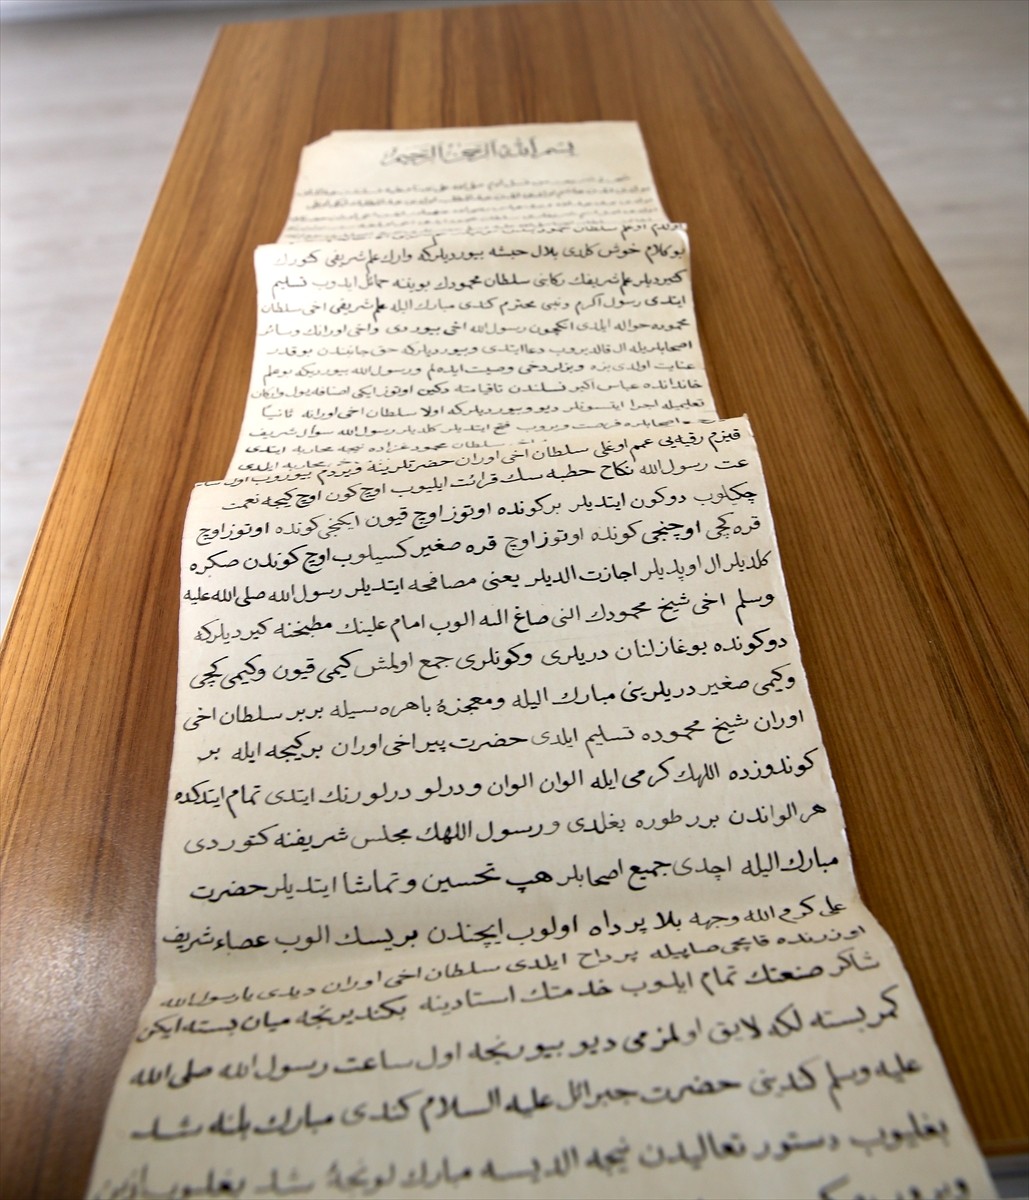 بسم الله الرحمن الرحيم
اولدم اوغلم سلطان محمود
بو كلام خوش كلدی بلال حبشه بیوردیلركه وارك علم شریفی كتورك
كتیردیلر علم شریفك ركابنی سلطان محمودك بوینه حمائل ایدوب تسلیم
ایتدی رسول اكرم ونبی محترم كندی مبارك الیله علم شریفی اخی سلطان
محموده حواله ایلدی انكچون رسول الله اخی بیوردی واخی اورانك وسائر
اصحابلریله ال قالدیروب دعا ایتدی وبیوردیلركه حق جانبندن بو قدر
عنایت اولدی بزه وبزلردخی وصیت ایدەلم ورسول الله بیوردیكه بو علم
خانداننده عباس اكبر نسلندن تا قیامته دكین اوتوز ایكی اصناف یول واركان
تعلیمیله اجرا ایتسونلر دیو وبیوردیلركه اولا سلطان اخی اورانه ثانیا
اصحابلره فرصت ویروب فتح ایتدیلر كلدیلر رسول الله سوال شریف
سلطان محمود غزاده نیجه محاربه ایتدی
قیزم رقیه یی عمم اوغلی سلطان اخی اوران حضرتلرینه ویردم بیوروب
عت رسول الله نكاح خطبه سك قرائت ایلیوب اوچ كون اوچ كیجه نعمت
چكیلوب دوكون ایتدیلر بركونده اوتوز اوچ قیون ایكنجی كونده اوتوز اوچ
قره كچی اوچنجی كونده اوتوز اوچ قره صغیر كسیلوب اوچ كوندن صكره
كلدیلر ال اوپدیلر اجازت الدیلر یعنی مصافحه ایتدیلر رسول الله صلی الله علیه
وسلم اخی شیخ محمودك النی صاغ النه الوب امام علینك مطبخنه كیردیلركه
دوكونده بوغازلنان دریلری وكونلری جمع اولمش كیمی قیون وكیمی كچی
وكیمی صغیر دریلرینی مبارك الیله ومعجزهٔ باهره سیله بربر سلطان اخی
اوران شیخ محموده تسلیم ایلدی حضرت پیر اخی اوران بركیجه ایله بر
كوندوزده اللهك كرمی ایله الوان الوان ودرلو درلو رنك ایتدی تمام ایتدكده
هر الواندن برر طوره بغلدی ورسول اللهك مجلس شریفنه كتوردی
مبارك الیله اچدی جمیع اصحابلر هپ تحسین وتماشا ایتدیلر حضرت
علی كرم الله وجهه بلا پرداه اولوب ایچندن بریسك الوب عصاء شریف
اوزرنده قامچی صاپیله پرداح ایلدی سلطان اخی اوران دیدی یا رسول الله
شاكر صنعتك تمام ایلیوب خدمتك استادینه بكندیرنجه میان بسته ایكن
كمر بسته لكه لایق اولمزمی دیو بیورنجه اول ساعت رسول الله صلی الله
علیه وسلم كندینی حضرت جبرائل علیه السلام كندی مبارك بلنه شد
بغلیوب دستور تعالیدن نیجه الدیسه مبارك لونجهٔ شد بغلیوب